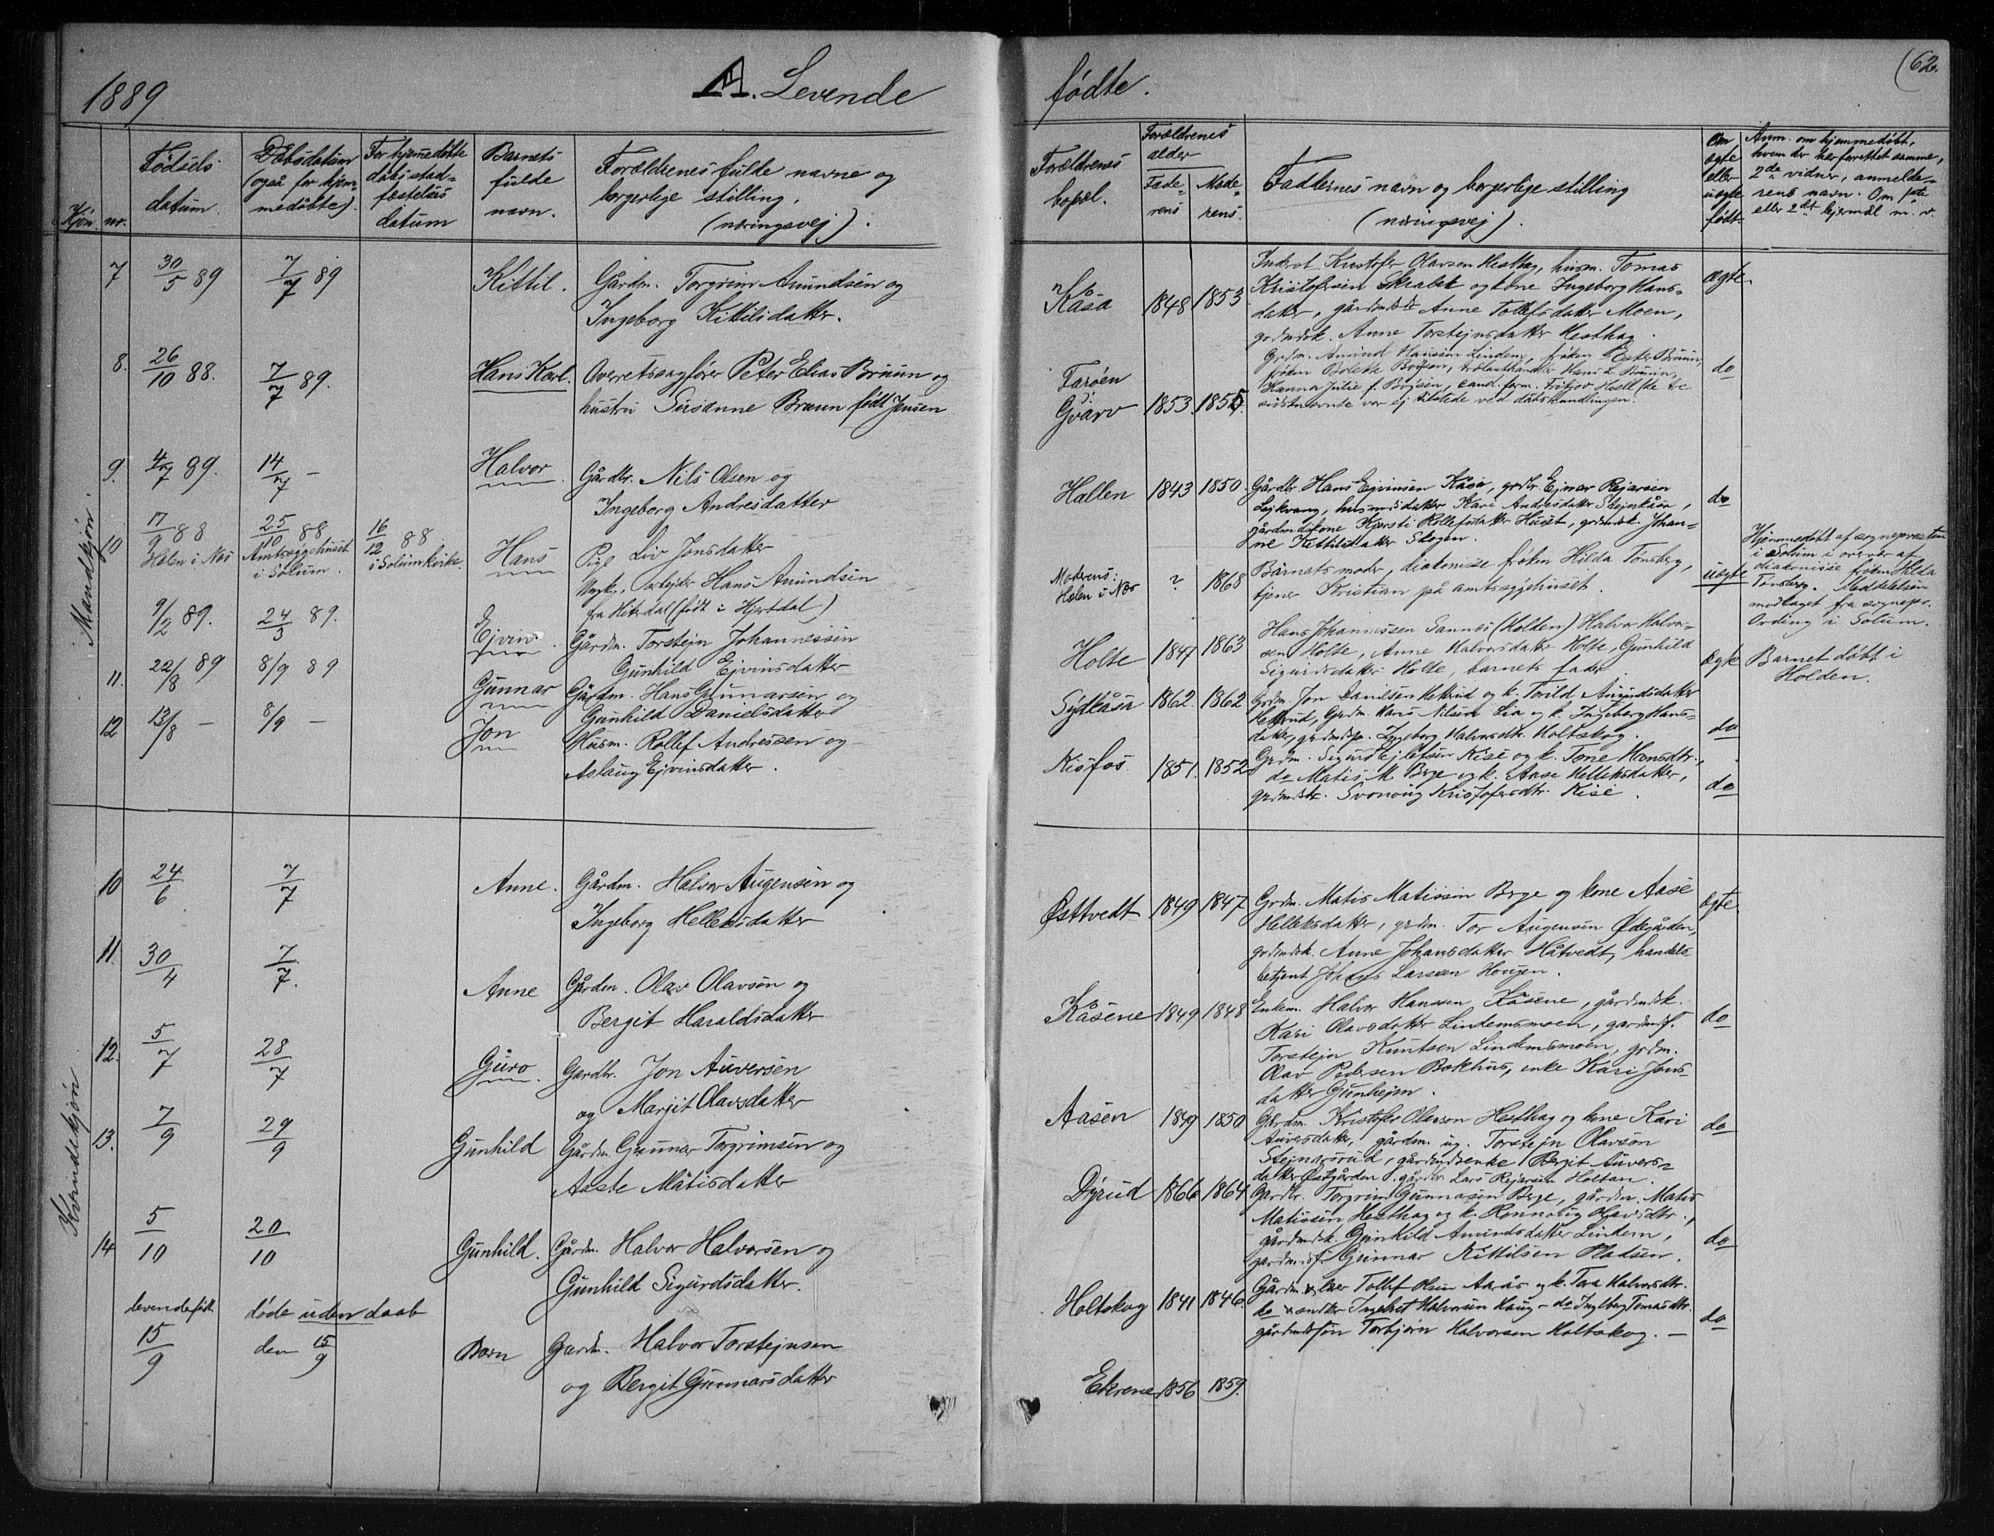 1889
A. Levende
fødte.
(62.
Kjøn
nr.
Fødsels
datum.
Døbsdatum
(også for hjem-
medøbte).
For hjemmedøbte
dåbs stad-
festelsis
datum
Barnets
fulde
navn.
Forældrenes fulde navne og
borgerlige stilling,
(næringsvej).
Forældrenes
bopæl.
Forældrenes
alder
Fade-
rens
Mode-
rens.
Faddernes navn og borgerlige stilling
(næringsvej).
Om
ægte
eller
uægte
født.
Anm. om hjemmedøbt,
hvem der har forettet samme,
2de vidner, anmelde-
rens navn. Om 1ste
eller 2det lejermål m. v.
Mandkjøn.
7
30/5 89
7/7 89
Kittil.
Gårdm. Torgrim Amundsen og
Ingeborg Kittilsdatter.
Kåsa
1848
1853
Kristofer Olavsen Hesthag, husm. Tomas
Kristofersen og kone Ingeborg Hans-
datter, Anne Tollefsdatter Moen,
Anne Torstejnsdatter Hesthag.
ægte
8.
26/10 88.
7/7 89.
Hans Karl.
Overretssagfører Peter Elias Bruun og
hustru Susanne Bruun født Jensen
Farøen
Gvarv
1853.
1855.
Grdm. Amund Hansen Lindem, frøken Ester Bruun,
frøken Bolette Bojsen, Hans L. Bruun,
Hanna Julie f. Bojsen, cand. farm.
sidstnævnte var ej tilstede ved dåbshandlingen.
do
9.
4/7 89.
14/7 –
Halvor.
Gårdbr. Nils Olsen og
Ingeborg Andresdatter
Hallen
1843
1850.
Gårdbr. Hans Ejvinsen Kåsa, grdbr Ejnar Rejersen
Lejkvang, husmdsdatter Kari Andresdatter Stejnkåsa,
gårdmdskone Kjersti Rollefsdatter Huset, grdmdsk. Johan-
ne Kittilsdatter Skogen.
do
10
17/9 88
Hælen i Næs
25/10 88
Amtssygehuset
i Solum.
16/12 88
i Solum kirke.
Hans
Pige Liv Jonsdatter
Ungk., arbejder Hans Amundsen
fra Hiterdal (født i Hjertdal)
Moderens:
Hælen i Næs
?
1868
Barnets moder, diakonisse frøken Hilda Tønsberg,
tjener Kristian på amtssygehuset.
uægte
Hjemmedøbt af sognepresten
i Solum i overvær af
diakonisse frøken Hilda
Tønsberg. Meddelelsen
modtaget fra sognepr.
Ording i Solum.
9/2 89.
24/3 89.
Ejvind.
Gårdm. Torstejn Johannessen
Gunhild Ejvinsdatter
Holte
1841
1863
Hans Johannessen Sannes (Holden) Halvor Halvor-
sen Holte, Anne Halvorsdatter Holte, Gunhild
Sigurdsdatter Holte, barnets fader
Ægte
Barnet døbt i
Holden.
11.
22/8 89
8/9 89
Gunnar
Gårdm. Hans Gunnarsen og
Gunhild Danielsdatter
Sydkåsa
1862.
1862
Grdm. Jon Danielsen Heksrud og k. Torild Amundsdatter
Grdm Hans Nilsen Lia og k. Ingeborg Hans-
datter, Ingeborg Halvorsdtr. Holtskog.
do
12
13/8 –
8/9 –
Jon
Husm. Rollef Andressen og
Aslaug Ejvinsdatter.
Kisfos.
1851.
1852
Grdm. Sigurd Ejlefsen Kise og k. Tone Hansdtr.,
do Matis M. Berge og k. Aase Helleksdatter,
grdmdtr. Svonaug Kristofersdtr. Kise.
do
Kvindekjøn
10
24/6
7/7
Anne.
Gårdm. Halvor Augensen og
Ingeborg Helleksdatter
Østtvedt
1849
1847
Grdm. Matis Matissen Berge og kone Aase
Helleksdatter, grdm. Tor Augensen Ødegården,
grdmdsk. Anne Johansdatter Håtvedt, handels-
betjent Johans Larsen Hougen.
ægte.
11.
30/4
7/7.
Anne
Gårdm. Olav Olavsøn og
Bergit Haraldsdatter
Kåsene
1849
1848
Enkem. Halvor Hanssen Kåsene, gårdmdsk.
Kari Olavsdatter Lindemsmoen, gårdmdsf.
Torstejn Knutsen Lindemsmoen, grdm.
Olav Pedersen Bakhus, enke Kari Jons-
datter Gunhejm.
do
12.
5/7
28/7
Guro.
Gardbr. Jon Auversen
og Margit Olavsdatter
Aasen
1849
1850
Gårdm. Kristofer Olavson Hesthag og kone Kari
Auversdatter, gårdm. ug. Torstejn Olavsøn
Stejnarsrud, gårdmdsenke Bergit Auvers-
datter Østgården, gårdbr. Lars Rejersen Holtan.
do
13.
7/9
29/9
Gunhild
Gårdm Gunnar Torgrimsen og
Aaste Matisdatter
Dyrud
1866
1864
Gardbr. Torgrim Gunnarsen Berge, gårdm. Matis
Matissen Hesthag og k. Rønnaug Olavsdtr.,
gårdmdsk. Gunhild Amundsdatter Lindem,
gardmdsf. Gunnar Kittilsen Pladsen.
do
14
5/10
20/10
Gunhild.
Gårdm. Halvor Halvorsen og
Gunhild Sigurdsdatter.
Holtskog
1841
1846
Gårdm Tollef Olsen Aarås og k. Tora Halvorsdtr.
do Ingebret Halvorsen Haug – do Ingeborg Tomasdtr.
gårdmdssøn Torbjørn Halvorsen Holtskog. –
do
levendefødt
15/9
døde uden daab
den 15/9
Barn
Gardm. Halvor Torstejnsen
og Bergit Gunnarsdatter
Ekrene
1856
1859.